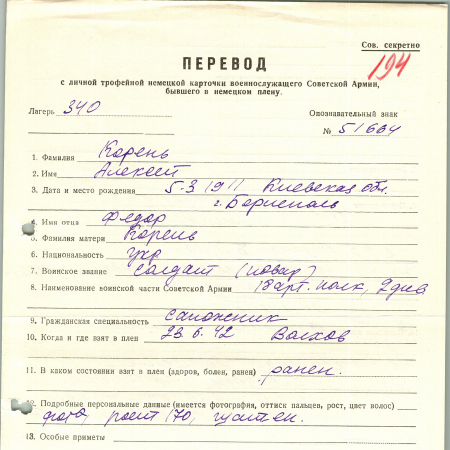 Сов. секретно
194
ПЕРЕВОД
с личной трофейной немецкой карточки военнослужащего Советской Армии,
бывшего в немецком плену.
Лагерь 340
Опознавательный знак
№ 51664
1. Фамилия Корень
2. Имя Алексей
3. Дата и место рождения 5-3 1911 Киевская обл.
г. Борисполь
4. Имя отца Федор
5. Фамилия матери Корень
6. Национальность укр
7. Воинское звание солдат (повар)
8. Наименование воинской части Советской Армии 18 арт. полк, 2 див
9. Гражданская специальность сапожник
10. Когда и где взят в плен 23.6.42 Волхов
11. В каком состоянии взят в плен (здоров, болен, ранен) ранен.
12. Подробные персональные данные (имеется фотография, оттиск пальцев, рост, цвет волос)
фото, рост 170,
13. Особые приметы